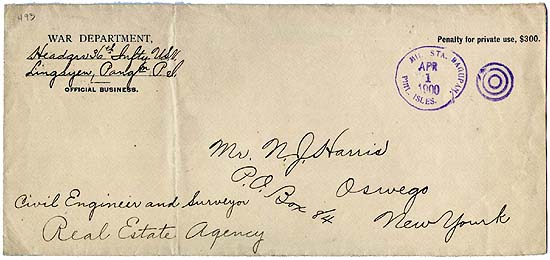 H93
WAR DEPARTMENT,
Headqrs 36th Infty U.S.V.
Lingayen, Pang P.I.
OFFICIAL BUSINESS.
Penalty for private use, $300.
MIL. STA. DAGUPAN,
APR
1
1900
PHIL. ISLES.
Mr. N. J. Harris
P.O. Box 84
Oswego
New York
Civil Engineer and Surveyor
Real Estate Agency